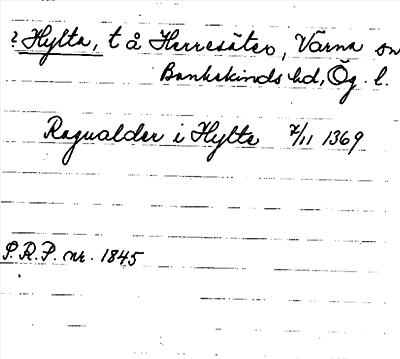 ? Hylta, t å Herresäter, Värna sn
Bankekinds hd, Ög. l.
Ragualder i Hylte 7/11 1369
S.R.P. nr. 1845